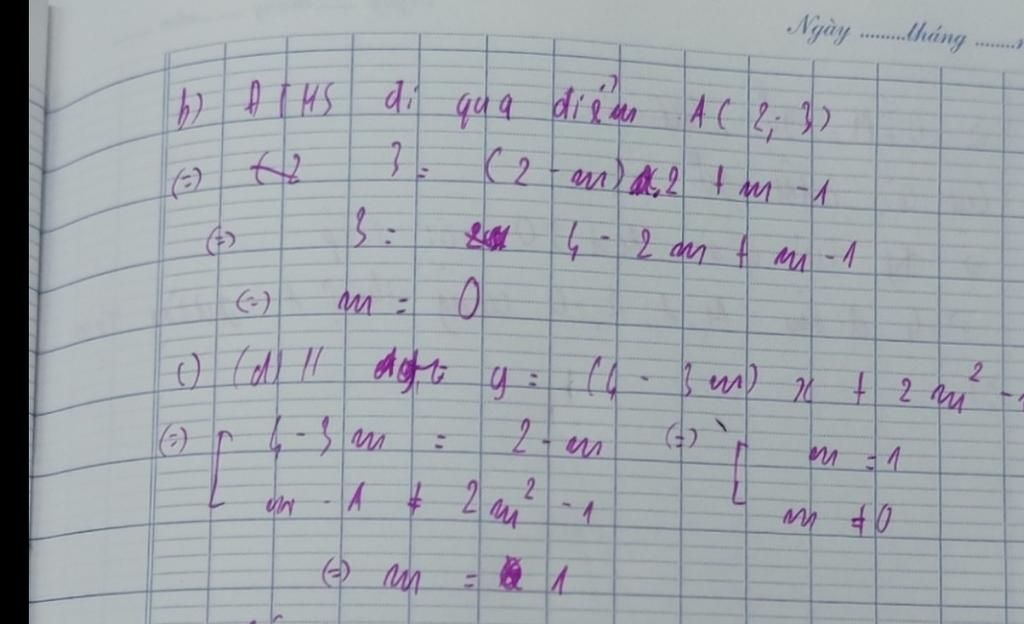 Ngày ......... tháng .........
b) ĐTHS đi qua điểm A(2; 3)
(=) 3 = (2 - m).2 + m - 1
(=) 3 = 4 - 2m + m - 1
(=) m = 0
c) (d) // đgt y = (4 - 3m) x + 2m² - 1
(=) [ 4 - 3m = 2 - m (=) [ m = 1
m - 1 ≠ 2m² - 1 m ≠ 0
(=) m = 1